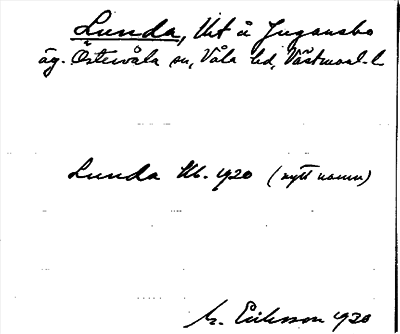 Lunda, Utt å Jugansbo
äg. Östervåla sn, Våla hd, Västmanl. l.
Lunda Utt. 1920 (nytt namn)
M. Eriksson 1920